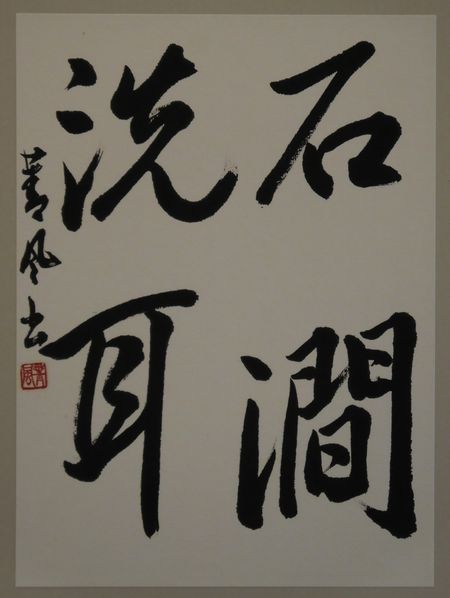 石澗
洗耳
風書